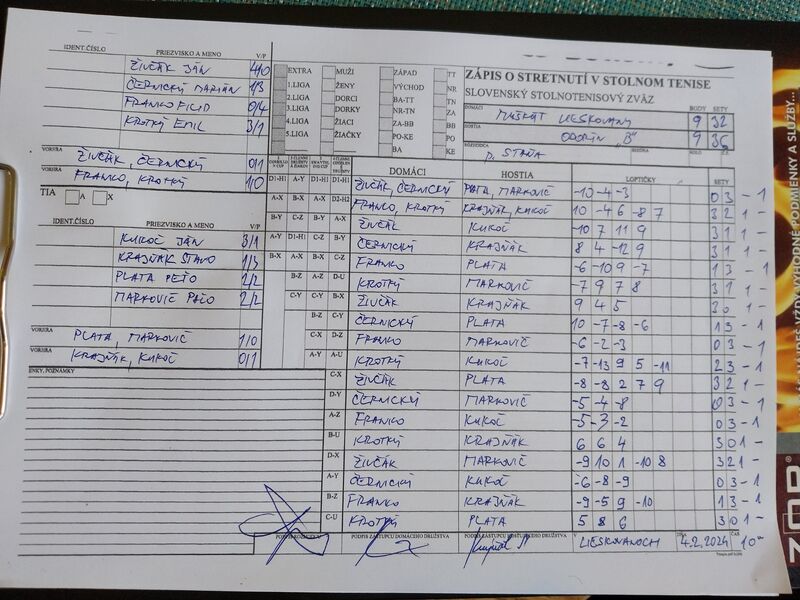 IDENT.ČÍSLO PRIEZVISKO A MENO V/P
ŽIVČÁK JÁN 4/0
ČERNICKÝ MARIÁN 1/3
FRANKO FILIP 0/4
KROTKÝ EMIL 3/1
VORHRA ŽIVČÁK, ČERNICKÝ 0/1
VORHRA FRANKO, KROTKÝ 1/0
TIA A X
IDENT.ČÍSLO PRIEZVISKO A MENO V/P
KUKOČ JÁN 3/1
KRAJŇÁK STANO 1/3
PLATA PEŤO 2/2
MARKOVIČ PAĽO 2/2
PLATA, MARKOVIČ 1/0
VORHRA KRAJŇÁK, KUKOČ 0/1
POZNÁMKY
EXTRA MUŽI ZÁPAD TT
1.LIGA ŽENY VÝCHOD NR
2.LIGA DORCI BA-TT TN
3.LIGA DORKY NR-TN ZA
4.LIGA ŽIACI ZA-BB BB
5.LIGA ŽIAČKY PO-KE PO
BA KE
ZÁPIS O STRETNUTÍ V STOLNOM TENISE
SLOVENSKÝ STOLNOTENISOVÝ ZVÄZ
DOMÁCI MUŠKÁT LIESKOVANY BODY 9 SETY 32
HOSTIA ODORÍN "B" 9 36
ROZHODCA P. STAŇA
DOMÁCI HOSTIA LOPTIČKY SETY
D1-H1 A-Y D1-H1 D1-H1 ŽIVČÁK, ČERNICKÝ PLATA, MARKOVIČ -10 -4 -3 0 3 - 1
A-X B-X A-X D2-H2 FRANKO, KROTKÝ KRAJŇÁK, KUKOČ 10 -4 6 -8 7 3 2 1 -
B-Y C-Z B-Y A-X ŽIVČÁK KUKOČ -10 7 11 9 3 1 1 -
A-Y D1-H1 C-Z B-Y ČERNICKÝ KRAJŇÁK 8 4 -12 9 3 1 1 -
B-X A-X B-X C-Z FRANKO PLATA -6 -10 9 -7 1 3 - 1
B-Z A-Z D-U KROTKÝ MARKOVIČ -7 9 7 8 3 1 1 -
C-Y C-Y B-X ŽIVČÁK KRAJŇÁK 9 4 5 3 0 1 -
B-Z C-Y ČERNICKÝ PLATA 10 -7 -8 -6 1 3 - 1
C-X D-Z FRANKO MARKOVIČ -6 -2 -3 0 3 - 1
A-Y A-U KROTKÝ KUKOČ -7 -13 9 5 -11 2 3 - 1
C-X ŽIVČÁK PLATA -8 -8 2 7 9 3 2 1 -
D-Y ČERNICKÝ MARKOVIČ -5 -4 -8 0 3 - 1
A-Z FRANKO KUKOČ -5 -3 -2 0 3 - 1
B-U KROTKÝ KRAJŇÁK 6 6 4 3 0 1 -
D-X ŽIVČÁK MARKOVIČ -9 10 1 -10 8 3 2 1 -
A-Y ČERNICKÝ KUKOČ -6 -8 -9 0 3 - 1
B-Z FRANKO KRAJŇÁK -9 -5 9 -10 1 3 - 1
C-U KROTKÝ PLATA 5 8 6 3 0 1 -
PODPIS ZÁSTUPCU DOMÁCEHO DRUŽSTVA PODPIS ZÁSTUPCU HOSŤUJÚCEHO DRUŽSTVA V LIESKOVANOCH DŇA 4.2.2024 ČAS 10
VŽDY VÝHODNÉ PODMIENKY A SLUŽBY...